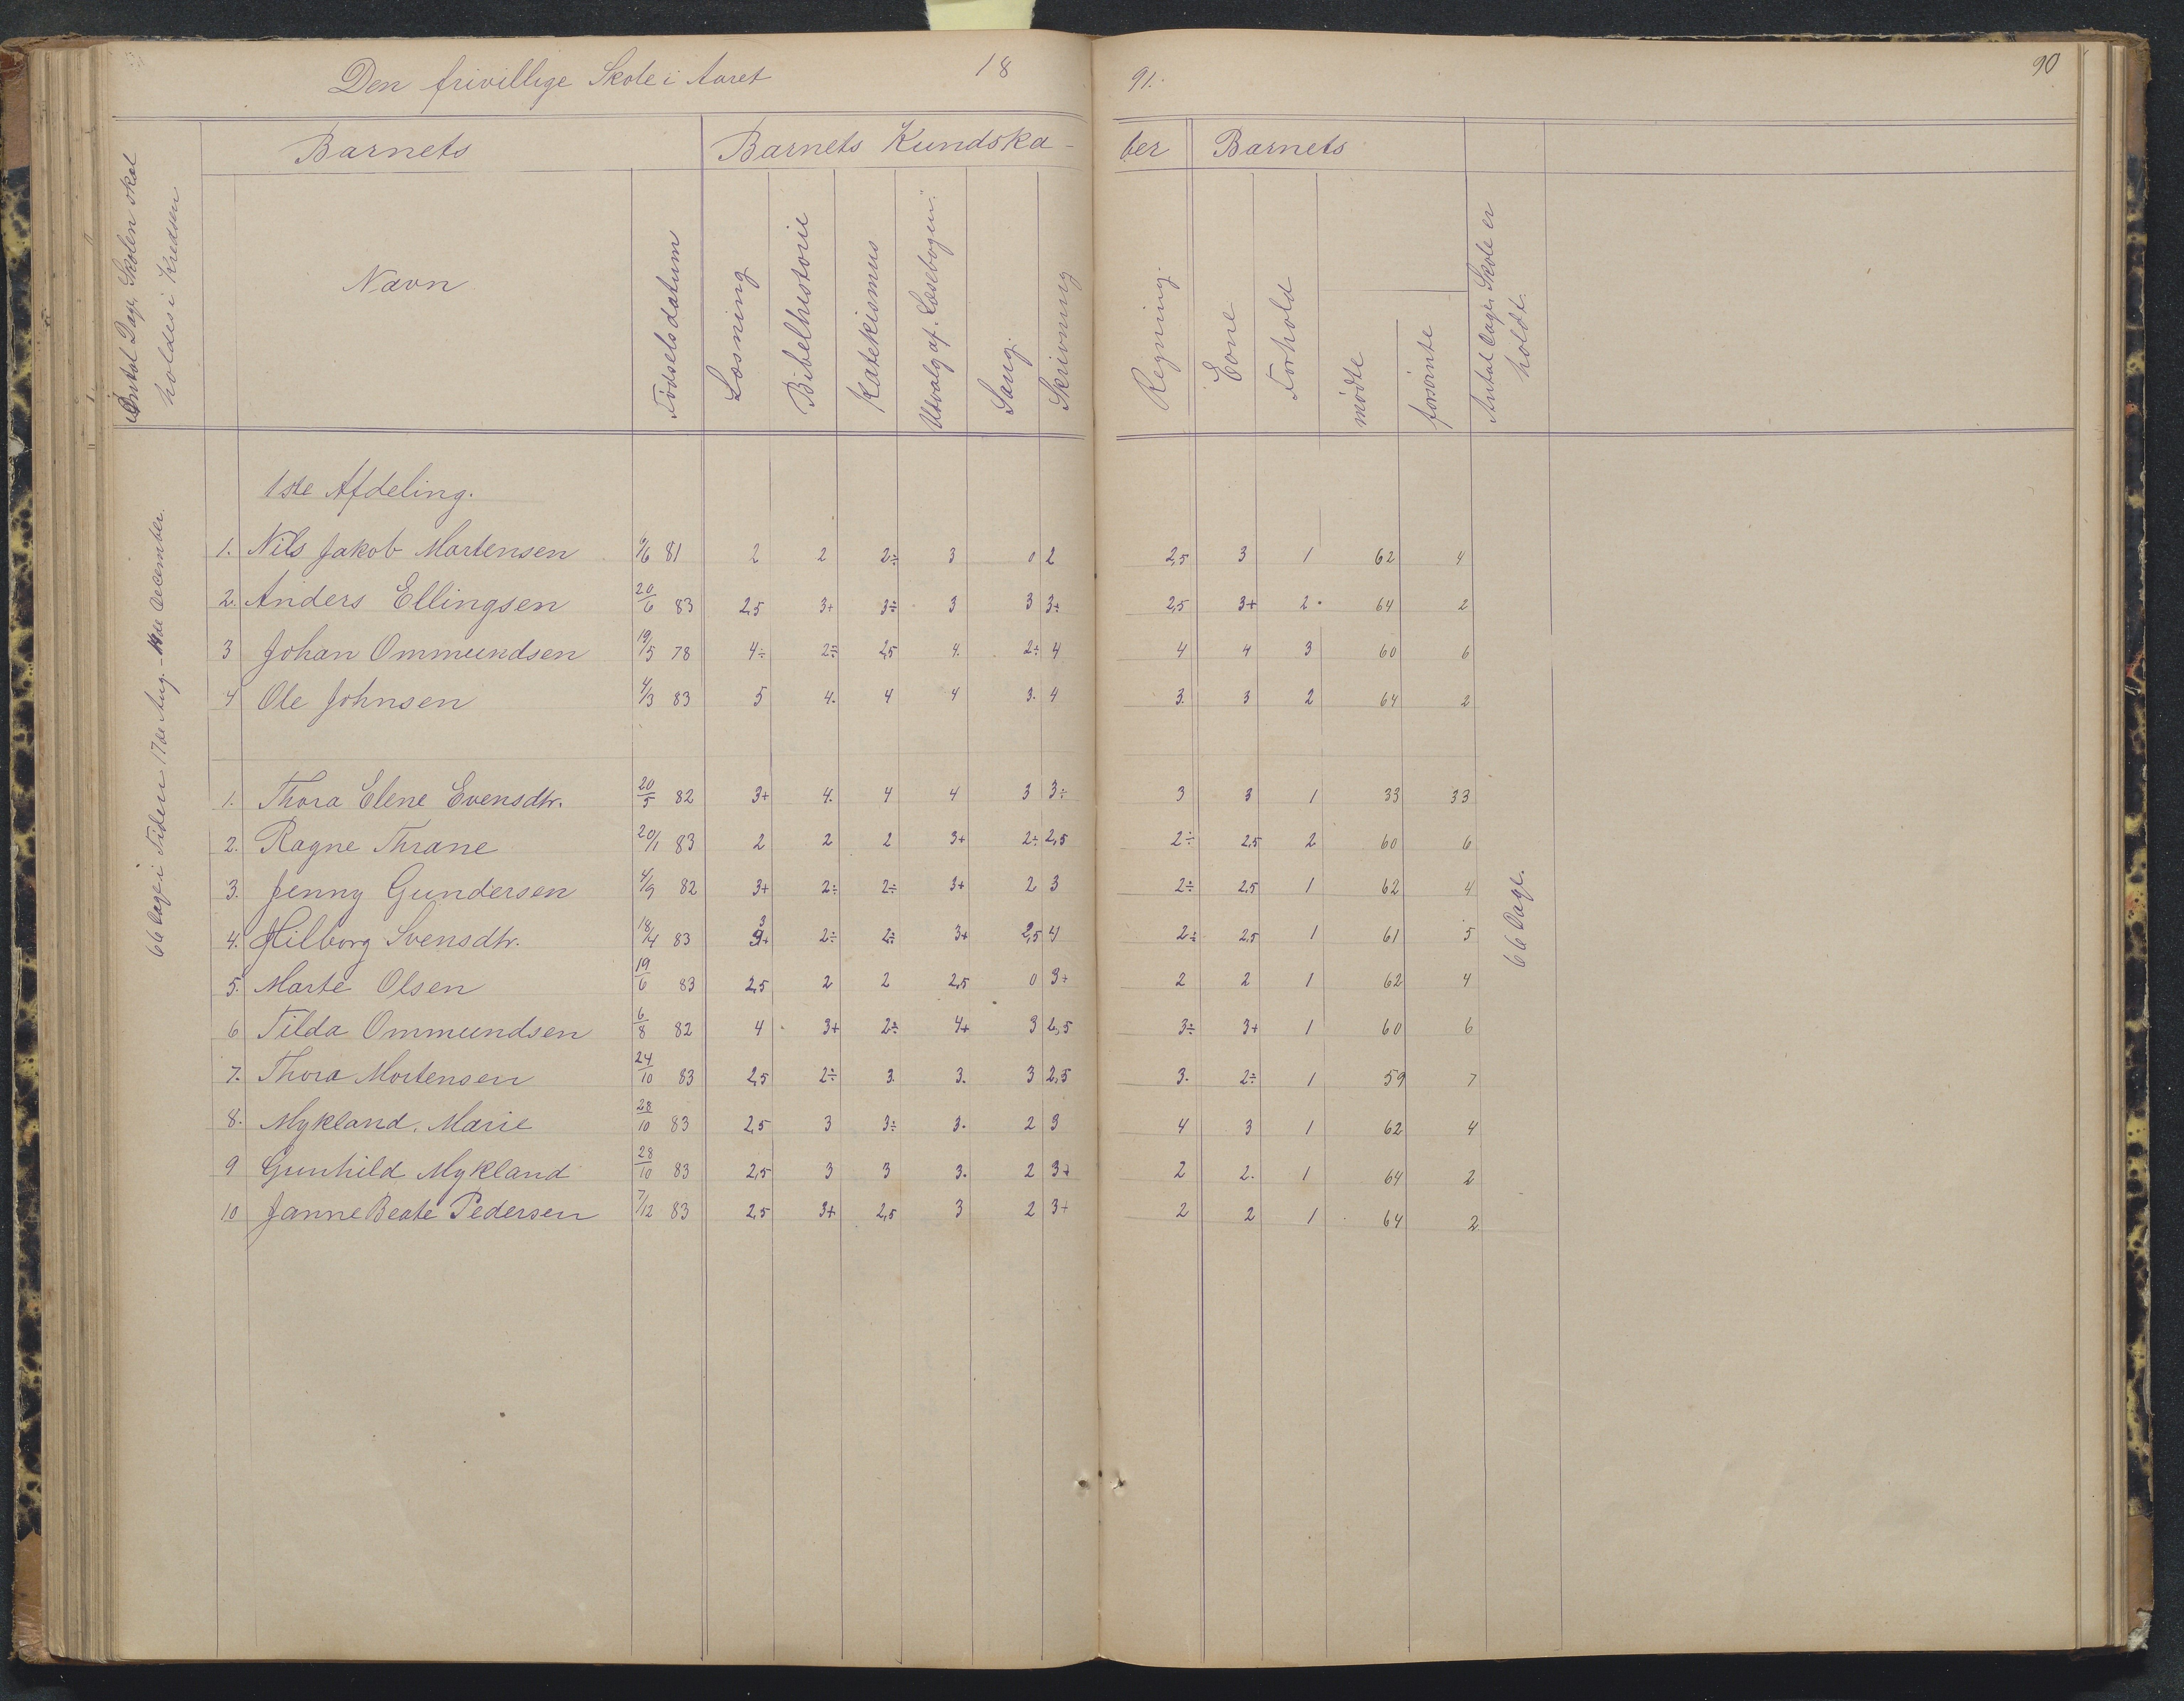 Den frivillige Skole i Aaret 1891. 90
Barnets Barnets Kundskaber Barnets
Antal Dage, Skolen skal
holdes i Kredsen
Navn
Fødselsdatum
Læsning
Bibelhistorie
Katekismus
Udvalg af "Læsebogen"
Sang.
Skrivning
Regning.
Evne
Forhold
mødte
forsømte
Antal Dage Skole er
holdt.
66 Dage i Tiden 17de Aug. - de December.
1ste Afdeling.
1. Nils Jakob Mortensen 9/6 81 2 2 2÷ 3 0 2 2,5 3 1 62 4
2. Anders Ellingsen 20/6 83 2,5 3+ 3÷ 3 3 3÷ 2,5 3+ 2 64 2
3 Johan Ommundsen 19/5 78 4÷ 2÷ 2,5 4. 2÷ 4 4 4 3 60 6
4 Ole Johnsen 4/3 83 5 4. 4 4 3. 4 3. 3 2 64 2
1. Thora Elene Evensdtr. 20/5 82 3+ 4. 4 4 3 3÷ 3 3 1 33 33
2. Ragne Thrane 20/1 83 2 2 2 3+ 2÷ 2,5 2÷ 2,5 2 60 6
3. Jenny Gundersen 4/9 82 3+ 2÷ 2÷ 3+ 2 3 2÷ 2,5 1 62 4
4. Hilborg Svensdtr. 18/4 83 3+ 2÷ 2÷ 3+ 2,5 4 2÷ 2,5 1 61 5
5. Marte Olsen 19/6 83 2,5 2 2 2,5 0 3+ 2 2 1 62 4
6 Tilda Ommundsen 6/8 82 4 3+ 2÷ 4+ 3 2,5 3÷ 3+ 1 60 6
7. Thora Mortensen 24/10 83 2,5 2÷ 3. 3. 3 2,5 3. 2÷ 1 59 7
8. Mykland, Marie 28/10 83 2,5 3 3÷ 3. 2 3 4 3 1 62 4
9 Gunhild Mykland 28/10 83 2,5 3 3 3. 2 3+ 2 2. 1 64 2
10 Janne Beate Pedersen 7/12 83 2,5 3+ 2,5 3 2 3+ 2 2 1 64 2
66 Dage.